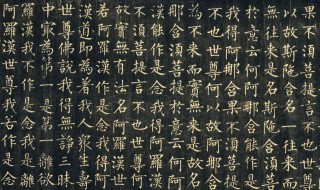 果不須菩提言不也世
以故斯陀含名一往來而
無往來是名斯陀含須
於意云何阿那含能作是
我得阿那含果不須菩提
不也世尊何以故阿那含
為不來而實無來是故
那含須菩提於意云何阿
漢能作是念我得阿羅漢
不須菩提言不也世尊何
故實無有法名阿羅漢世
若阿羅漢作是念我得阿
漢道即為著我人衆生壽
世尊佛說我得無諍三昧
中冣為第一是第一離欲
羅漢我不作是念我是離
阿羅漢世尊我若作是念